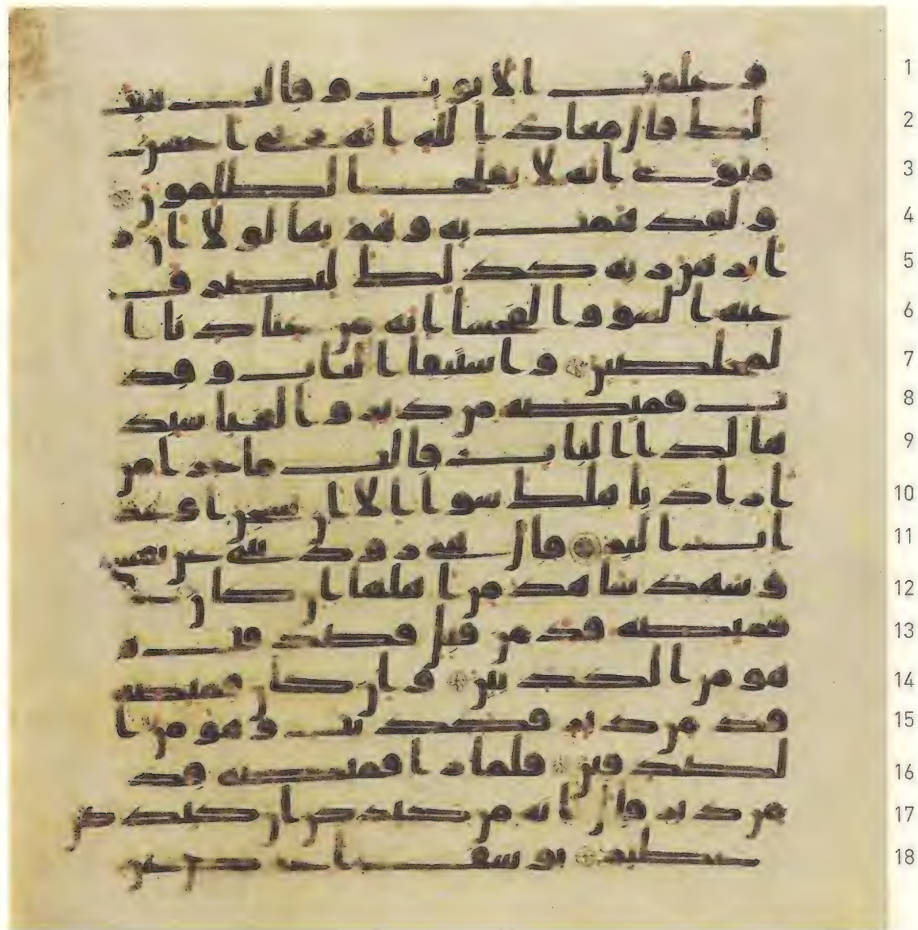 وغلقت الابوب وقالت هيت 1
لك قال معاذ الله انه ربى احسن 2
مثوى انه لا يفلح الظلمون 3
ولقد همت به وهم بها لو لا ان ر 4
ا برهن ربه كذلك لنصرف 5
عنه السو والفحشا انه من عبادنا ا 6
لمخلصين واستبقا الباب وقد 7
ت قميصه من دبر والفيا سيد 8
ها لدا الباب قالت ما جزا من 9
اراد باهلك سوا الا ان يسجن او عذ 10
اب اليم قال هى رودتنى عن نفسى 11
وشهد شاهد من اهلها ان كان 12
قميصه قد من قبل فصدقت و 13
هو من الكذبين وان كان قميصه 14
قد من دبر فكذبت وهو من ا 15
لصدقين فلما را قميصه قد 16
من دبر قال انه من كيدكن ان كيدكن 17
عظيم يوسف اعرض عن 18